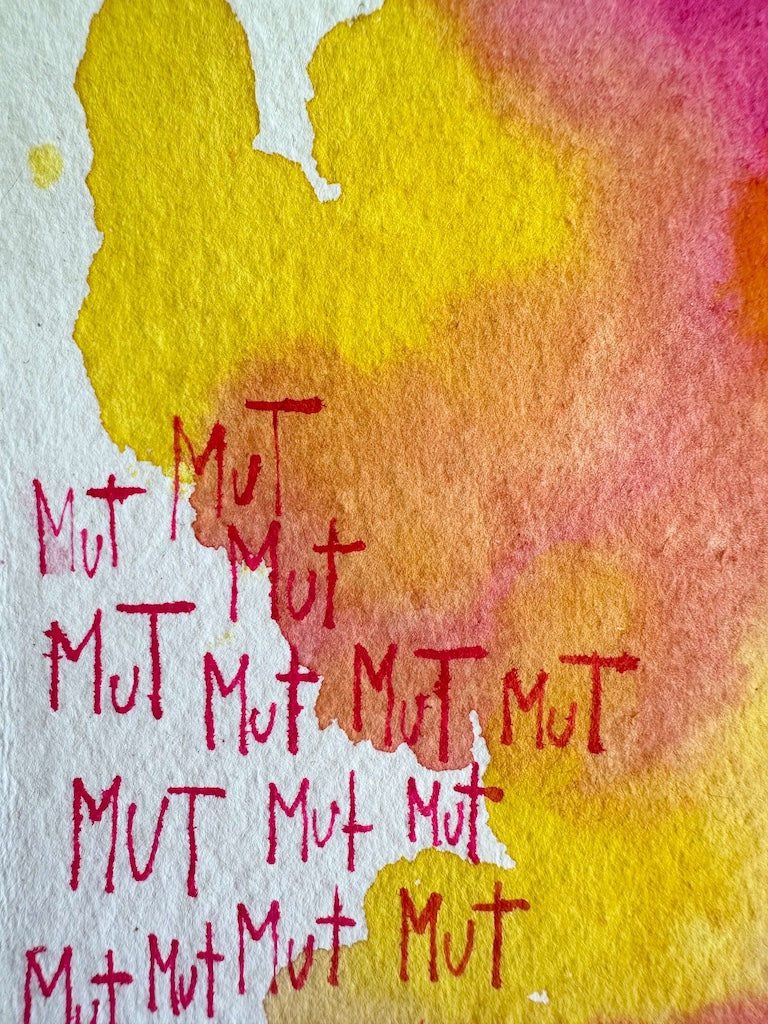 MuT
Mut
Mut
MuT
Mut MuT MuT
MUT Mut Mut
Mut Mut Mut Mut